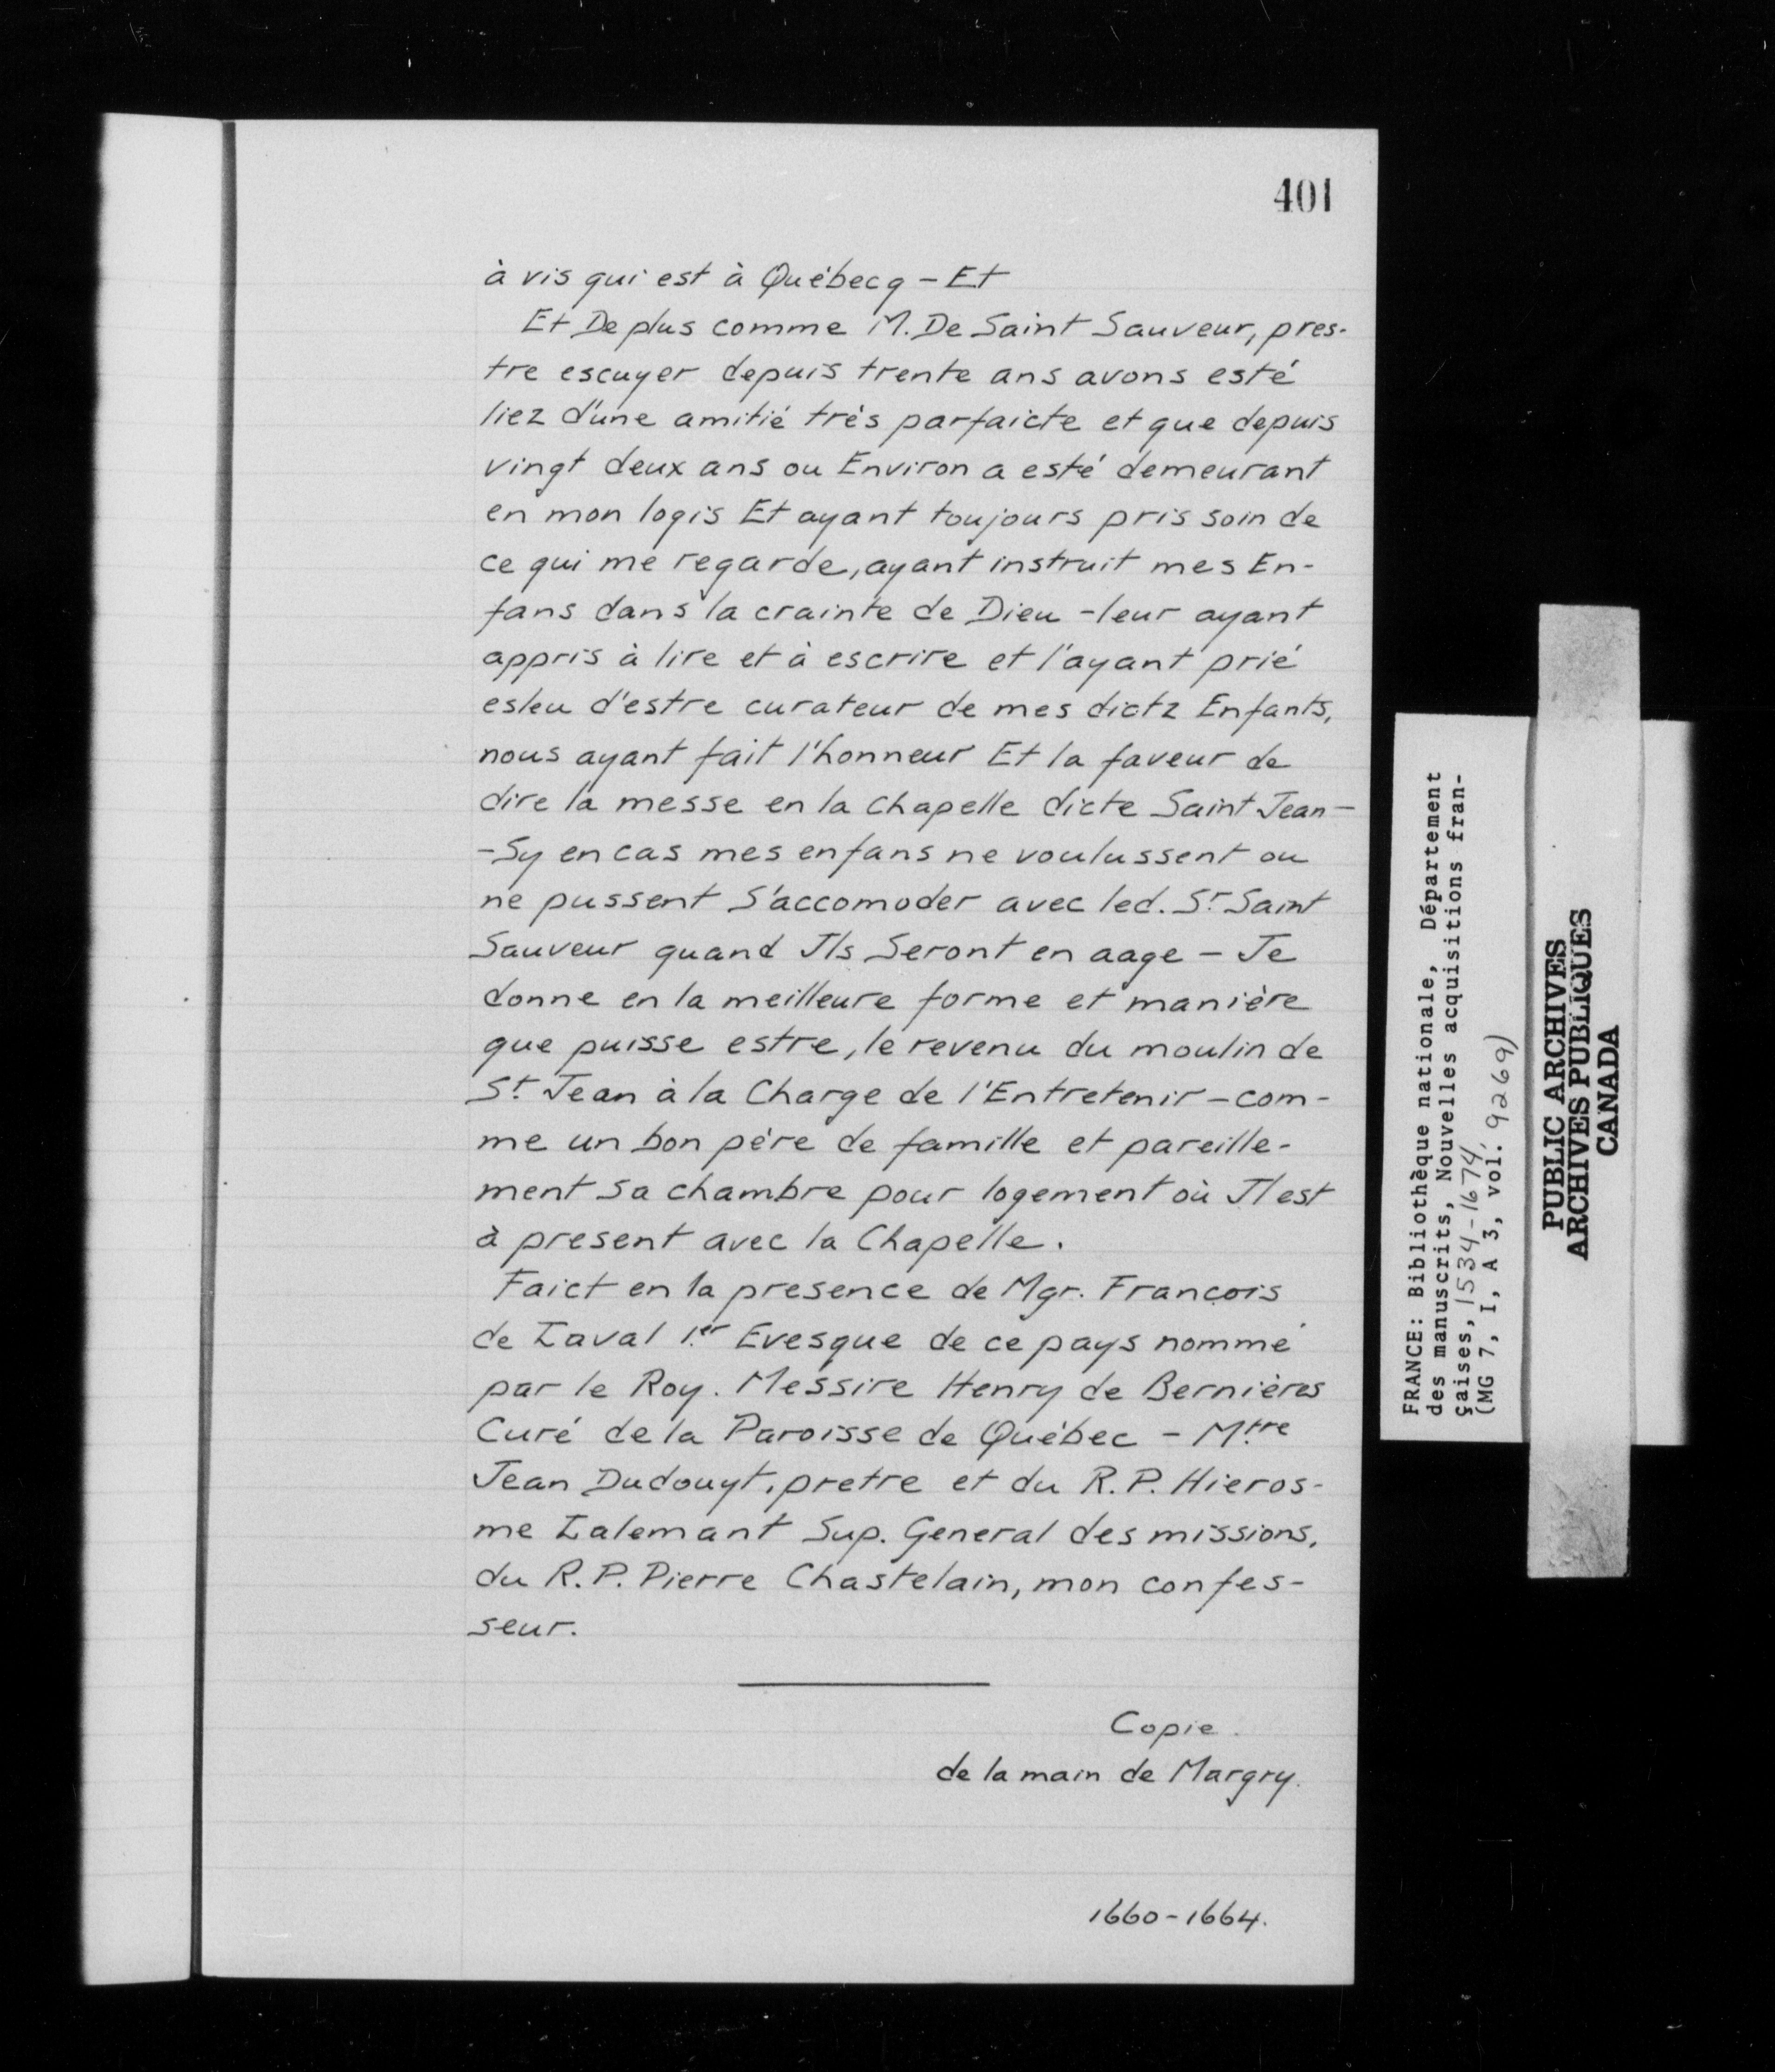 401
à vis qui est à Québecq - Et
Et De plus comme M. De Saint Sauveur, pres-
tre escuyer depuis trente ans avons esté
liez d'une amitié très parfaicte et que depuis
vingt deux ans ou Environ a esté demeurant
en mon logis Et ayant toujours pris soin de
ce qui me regarde, ayant instruit mes En-
fans dans la crainte de Dieu - leur ayant
appris à lire et à escrire et l'ayant prié
esleu d'estre curateur de mes dictz Enfants,
nous ayant fait l'honneur Et la faveur de
dire la messe en la Chapelle dicte Saint Jean -
- Sy en cas mes enfans ne voulussent ou
ne pussent S'accomoder avec led. Sr Saint
Sauveur quand Ils Seront en aage - Je
donne en la meilleure forme et manière
que puisse estre, le revenu du moulin de
St Jean à la Charge de l'Entretenir - com-
me un bon père de famille et pareille-
ment sa chambre pour logement où Il est
à present avec la Chapelle.
Faict en la presence de Mgr. François
de Laval 1.er Evesque de ce pays nommé
par le Roy. Messire Henry de Bernières
Curé de la Paroisse de Québec - Mtre
Jean Dudouyt, pretre et du R. P. Hieros-
me Lalemant Sup. General des missions,
du R. P. Pierre Chastelain, mon confes-
seur.
Copie.
de la main de Margry.
1660-1664.
FRANCE: Bibliothèque nationale, Département
des manuscrits, Nouvelles acquisitions fran-
çaises, 1534-1674,
(MG 7, I, A 3, vol. 9269)
PUBLIC ARCHIVES
ARCHIVES PUBLIQUES
CANADA